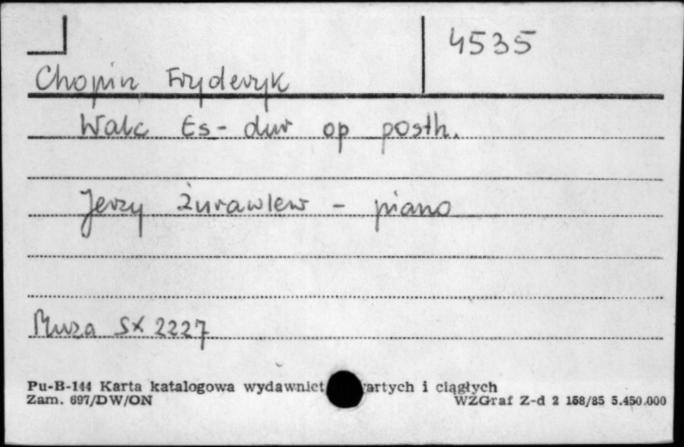 4535
Chopin Fryderyk
Walc Es-dur op posth.
Jerzy Żurawlew - piano
Muza SX 2227
Pu-B-144 Karta katalogowa wydawnict artych i ciągłych
Zam. 697/DW/ON WZGraf Z-d 2 158/85 5.450.000